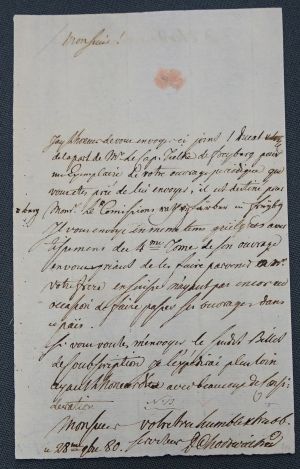 Monsieur!
J'ay l'honneur de vous envoyer ci joint 1 Ducat
de la part de Mr. le Cap. Tielke de Freyberg pour
un Exemplaire de votre ouvrage periodique que
vous etes prié de lui envoyer, il est destiné pour
Mons. le Comissions rath in Freyberg
Il vous envoye en meme tems quelques aver
tissements du 4me Tome de son ouvrage
en vous priant de les faire parvenir a Mr.
votre Frere en Suisse n'ayant pas encore eu
occasion de faire passer ses ouvrages dans
ce païs.
Si vous voulés m'envoyer le susdit Billet
de souscription je l'expedirai plus loin
ayant l'honneur d'etre avec beaucoup de consi
deration
Monsieur
votre tres humble & tres ob
serviteur
28me 9bre 80.